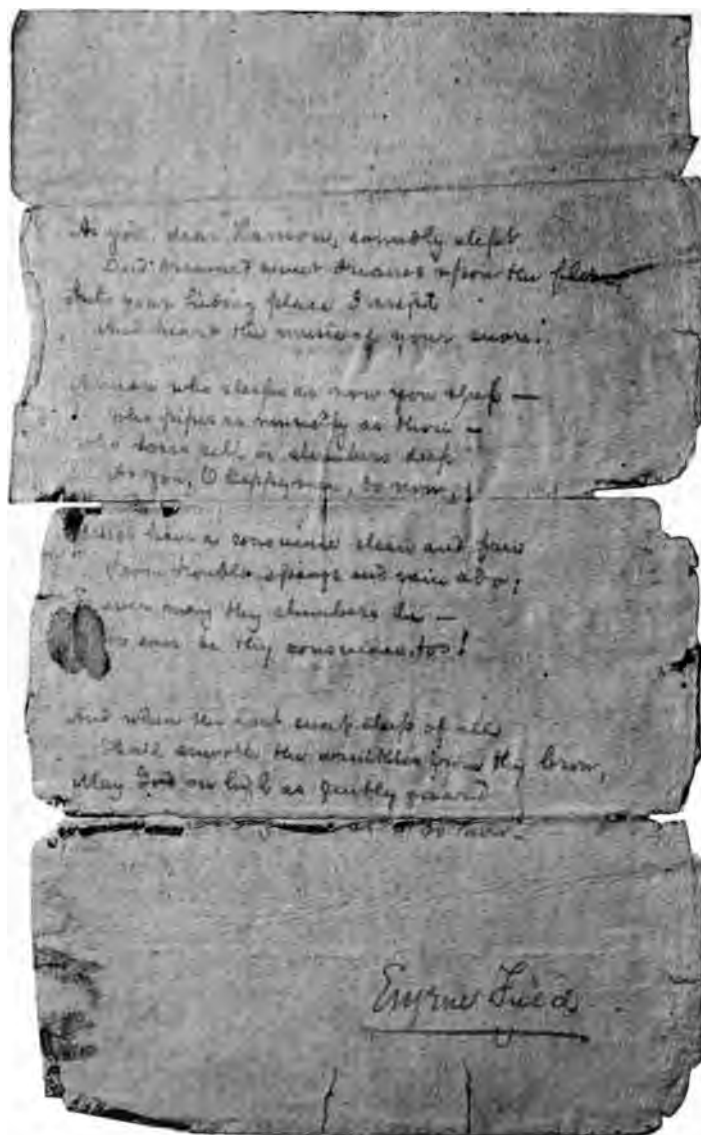 As you, dear Lamson, soundly slept
And dreamed sweet dreams upon the floor,
Into your hiding place I crept
And heard the music of your snore.
A man who sleeps as now you sleep —
Who pipes as music'ly as thou —
Who loses self in slumbers deep
As you, O happy man, do now,
Must have a conscience clean and free
From troublous pangs and vain ado;
So ever may thy slumbers be —
So ever be thy conscience, too!
And when the last sweet sleep of all
Shall smooth the wrinkles from thy brow,
May God on high as gently guard
as I do now.
Eugene Field